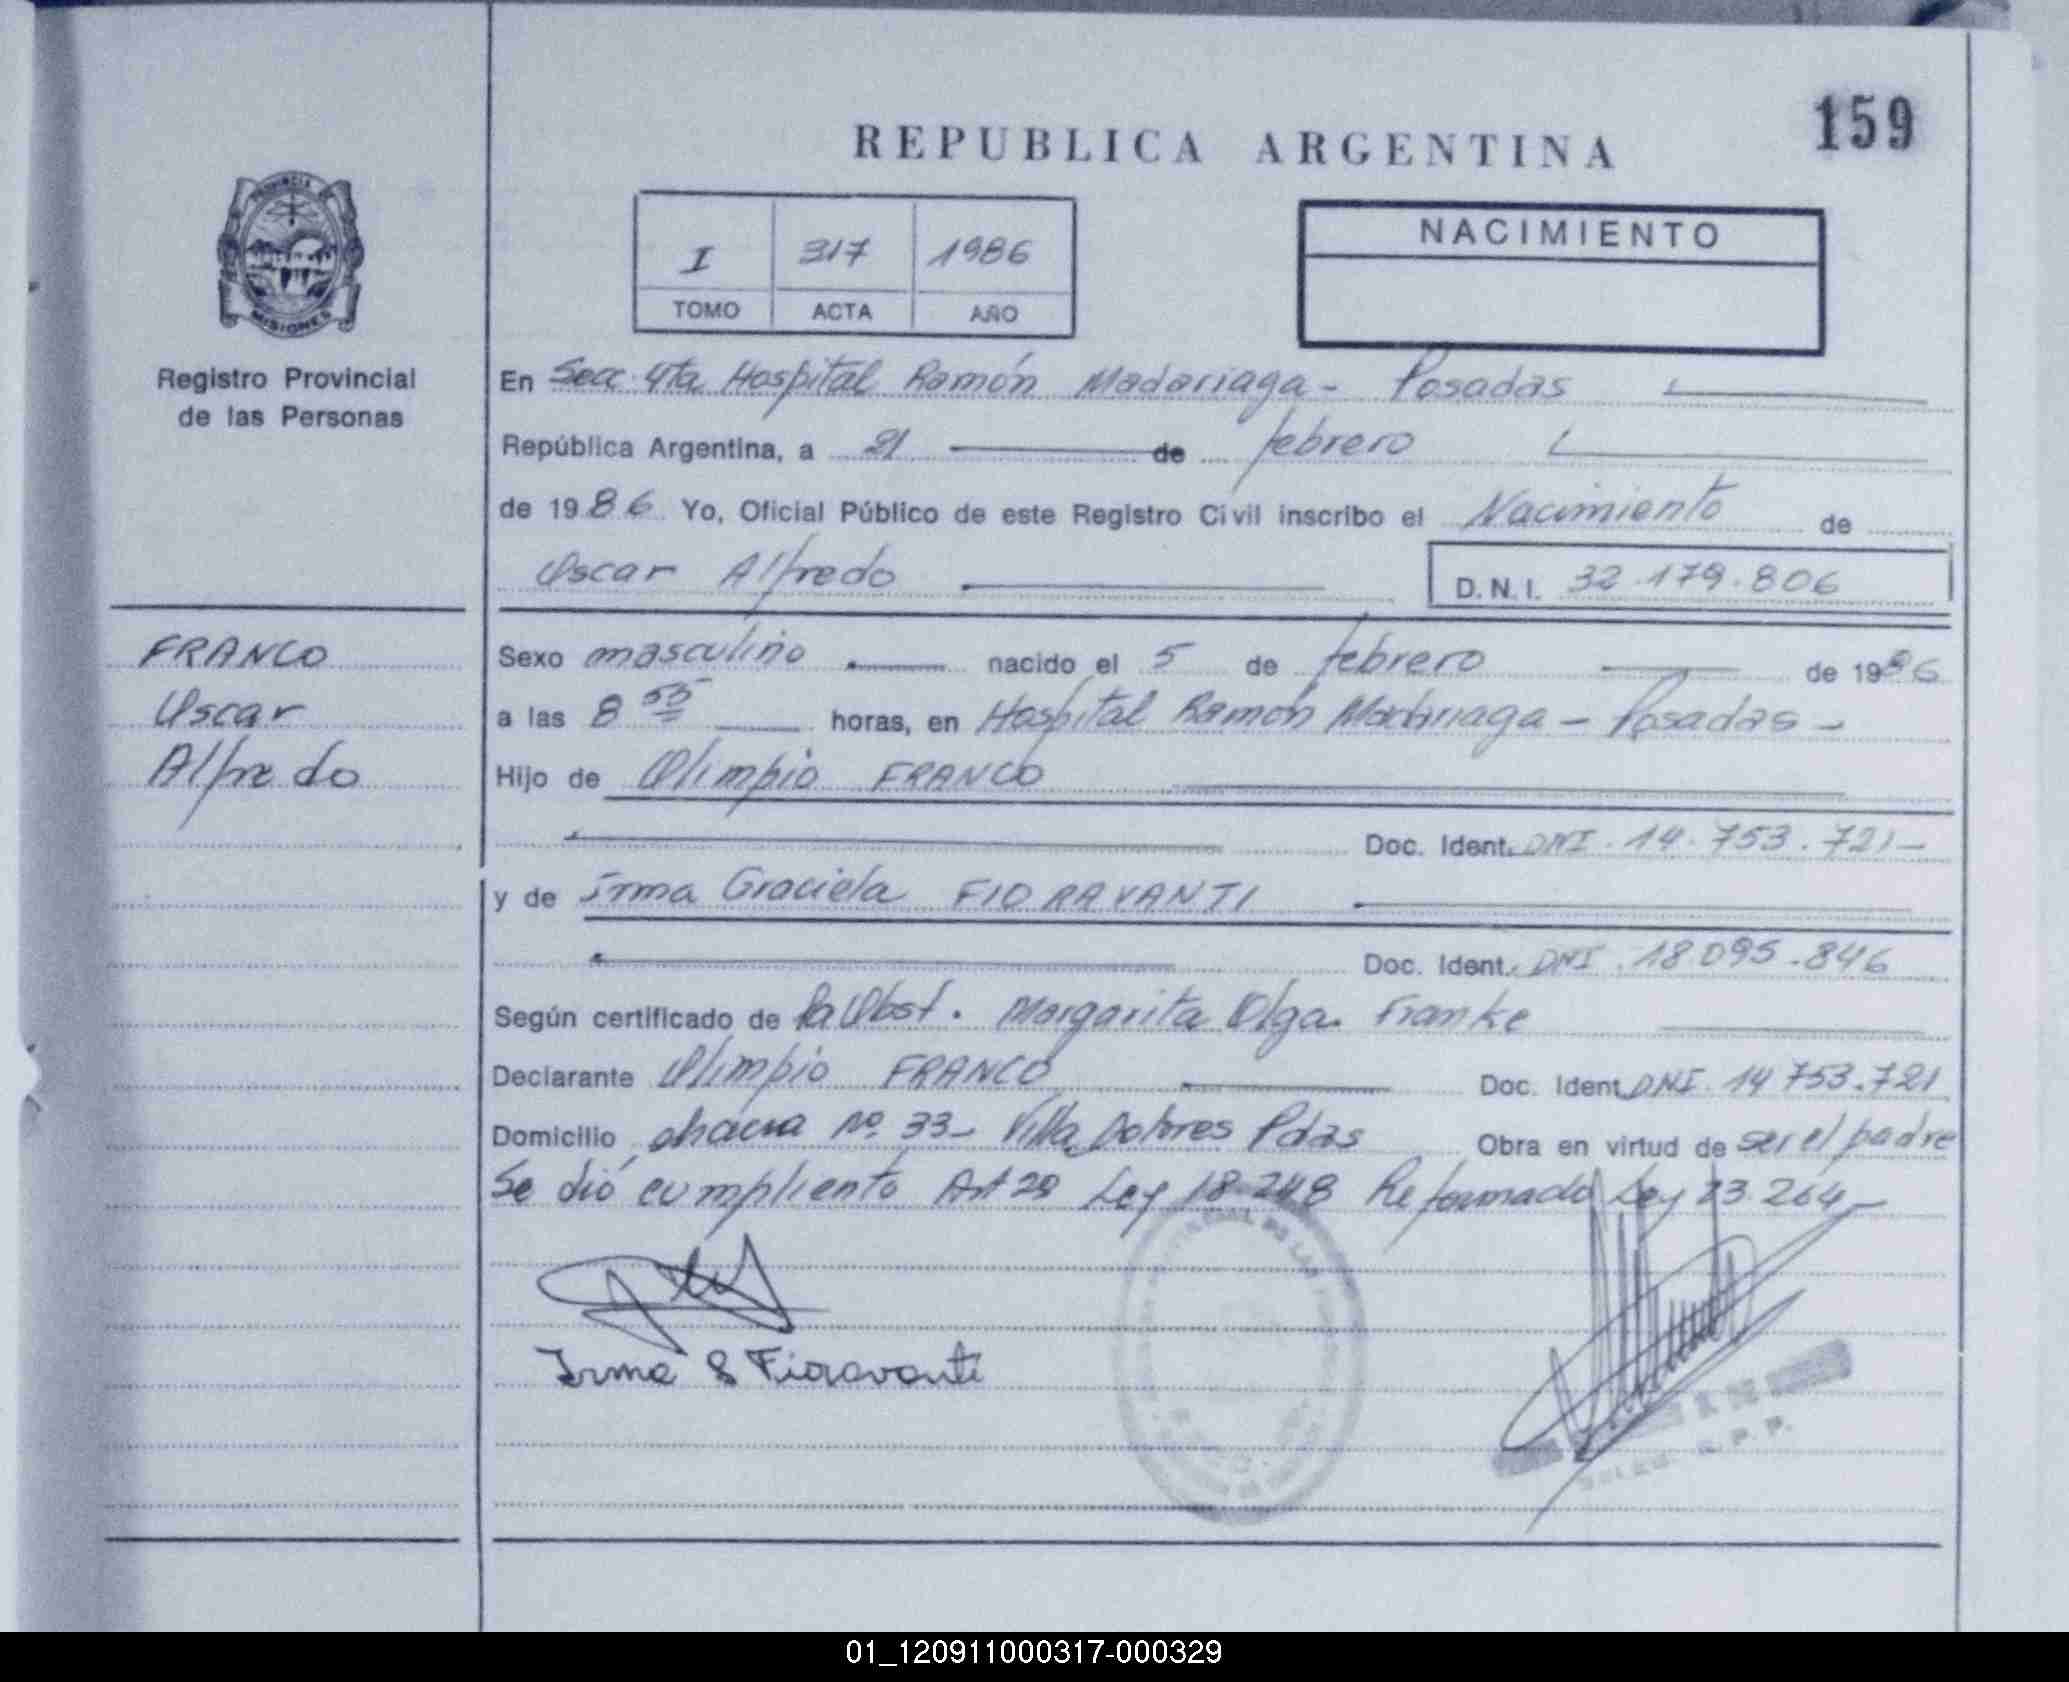 159
REPUBLICA ARGENTINA
PROVINCIA
MISIONES
Registro Provincial
de las Personas
I 317 1986
TOMO ACTA AÑO
NACIMIENTO
En Secc. 4ta Hospital Ramón Madariaga - Posadas
República Argentina, a 21 de febrero
de 1986 Yo, Oficial Público de este Registro Civil inscribo el Nacimiento de
Oscar Alfredo D.N.I. 32.179.806
FRANCO
Oscar
Alfredo
Sexo masculino nacido el 5 de febrero de 1986
a las 8 55 horas, en Hospital Ramón Madariaga - Posadas -
Hijo de Olimpio FRANCO
Doc. Ident. DNI. 14.753.721-
y de Irma Graciela FIORAVANTI
Doc. Ident. DNI. 18.095.846
Según certificado de la Obst. Margarita Olga Franke
Declarante Olimpio FRANCO Doc. Ident. DNI. 14.753.721
Domicilio chacra Nº 33- Villa Dolores Pdas Obra en virtud de ser el padre
Se dió cumpliento Art 29 Ley 18.248 Reformado Ley 23.264-
Irma G Fioravanti
R.P.P.
01_120911000317-000329